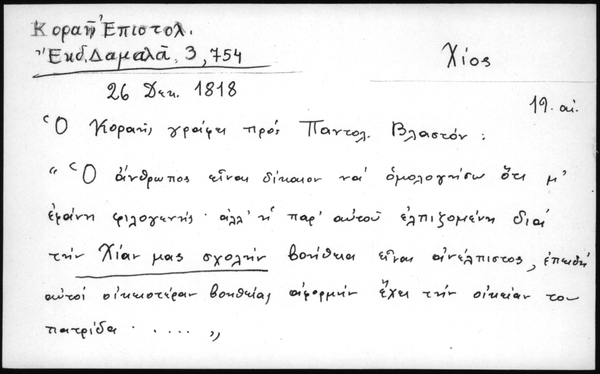 Κοραῆ Ἐπιστολ.
Ἔκδ. Δαμαλᾶ, 3, 754
Χίος
26 Δεκ. 1818
19. αἰ.
Ὁ Κοραῆς γράφει πρός Παντολ. Βλαστόν :
" Ὁ ἄνθρωπος εἶναι δίκαιον νά ὁμολογήσω ὅτι μ'
ἐφάνη φιλογενής· ἀλλ' ἡ παρ' αὐτοῦ ἐλπιζομένη διά
τήν Χίαν μας σχολήν βοήθεια εἶναι ἀνέλπιστος, ἐπειδή
αὐτοί οἰκειοτέραν βοηθείας ἀφορμήν ἔχει τήν οἰκείαν του
πατρίδα . . . . . "